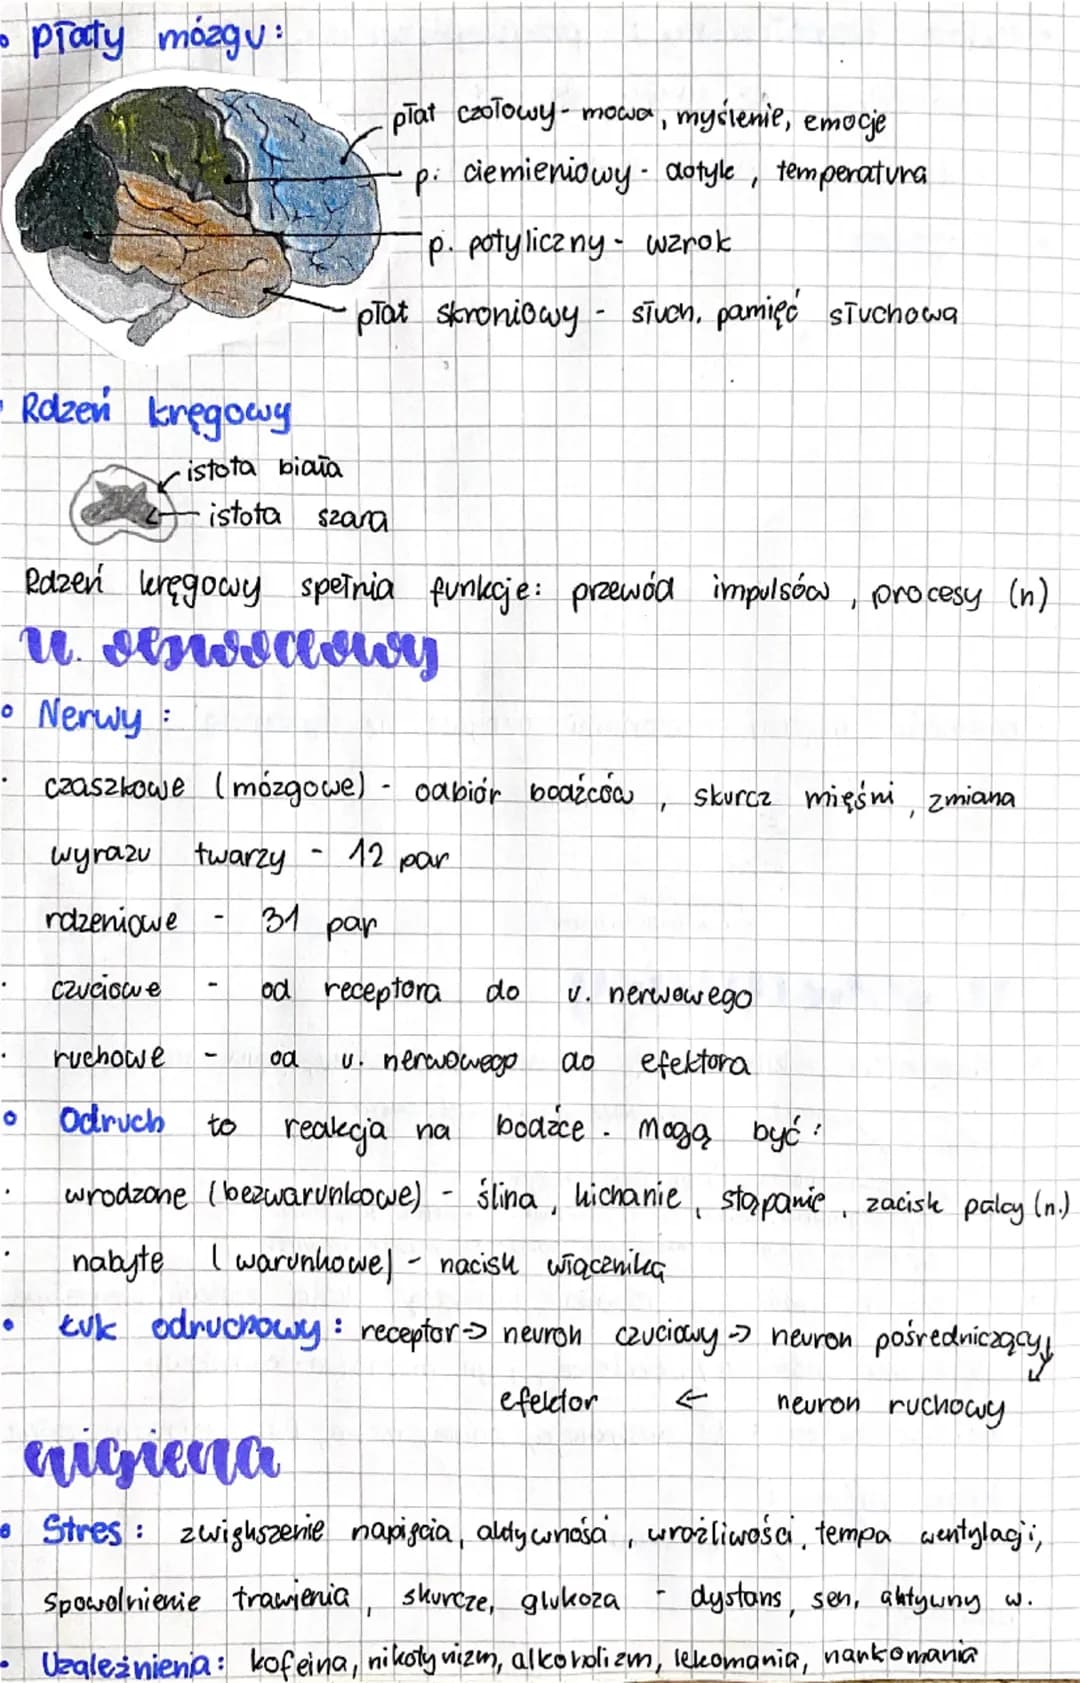 • płaty mózgu:
płat czołowy - mowa, myślenie, emocje
p. ciemieniowy - dotyk, temperatura
p. potyliczny - wzrok
płat skroniowy - słuch, pamięć słuchowa
• Rdzeń kręgowy
istota biała
istota szara
Rdzeń kręgowy spełnia funkcje: przewód impulsów, procesy (n)
u. obwodowy
• Nerwy:
• czaszkowe (mózgowe) - odbiór bodźców, skurcz mięśni, zmiana
wyrazu twarzy - 12 par
rdzeniowe - 31 par
• czuciowe - od receptora do u. nerwowego
• ruchowe - od u. nerwowego do efektora
• Odruch to reakcja na bodźce. Mogą być:
• wrodzone (bezwarunkowe) - ślina, kichanie, stąpanie, zacisk palcy (n.)
• nabyte (warunkowe) - nacisk włącznika
• Łuk odruchowy: receptor -> neuron czuciowy -> neuron pośredniczący ↓
efektor ← neuron ruchowy
higiena
• Stres: zwiększenie napięcia, aktywności, wrażliwości, tempa wentylacji,
spowolnienie trawienia, skurcze, glukoza - dystans, sen, aktywny w.
• Uzależnienia: kofeina, nikotynizm, alkoholizm, lekomania, narkomania